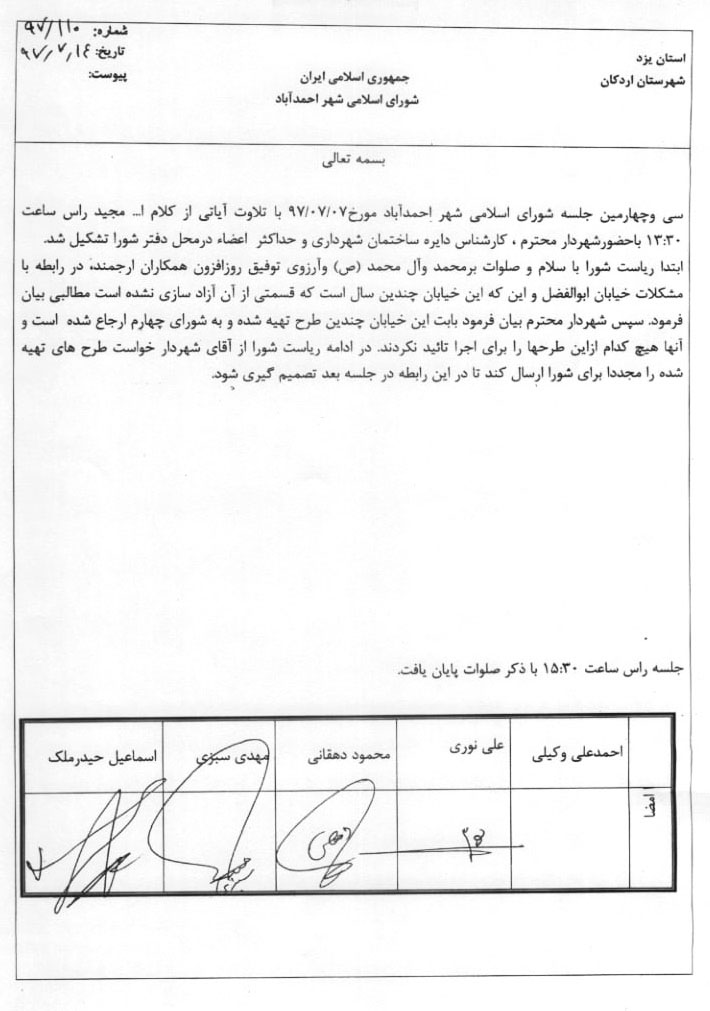 شماره: ۹۷/۱۱۰
تاریخ: ۹۷٫۷٫۱۴
پیوست:
استان یزد
شهرستان اردکان
جمهوری اسلامی ایران
شورای اسلامی شهر احمدآباد
بسمه تعالی
سی وچهارمین جلسه شورای اسلامی شهر احمدآباد مورخ۹۷/۰۷/۰۷ با تلاوت آیاتی از کلام ا... مجید راس ساعت
۱۳:۳۰ باحضورشهردار محترم ، کارشناس دایره ساختمان شهرداری و حداکثر اعضاء درمحل دفتر شورا تشکیل شد.
ابتدا ریاست شورا با سلام و صلوات برمحمد وآل محمد (ص) وآرزوی توفیق روزافزون همکاران ارجمند، در رابطه با
مشکلات خیابان ابوالفضل و این که این خیابان چندین سال است که قسمتی از آن آزاد سازی نشده است مطالبی بیان
فرمود. سپس شهردار محترم بیان فرمود بابت این خیابان چندین طرح تهیه شده و به شورای چهارم ارجاع شده است و
آنها هیچ کدام ازاین طرحها را برای اجرا تائید نکردند. در ادامه ریاست شورا از آقای شهردار خواست طرح های تهیه
شده را مجددا برای شورا ارسال کند تا در این رابطه در جلسه بعد تصمیم گیری شود.
جلسه راس ساعت ۱۵:۳۰ با ذکر صلوات پایان یافت.
احمدعلی وکیلی علی نوری محمود دهقانی مهدی سبزی اسماعیل حیدرملک
امضا